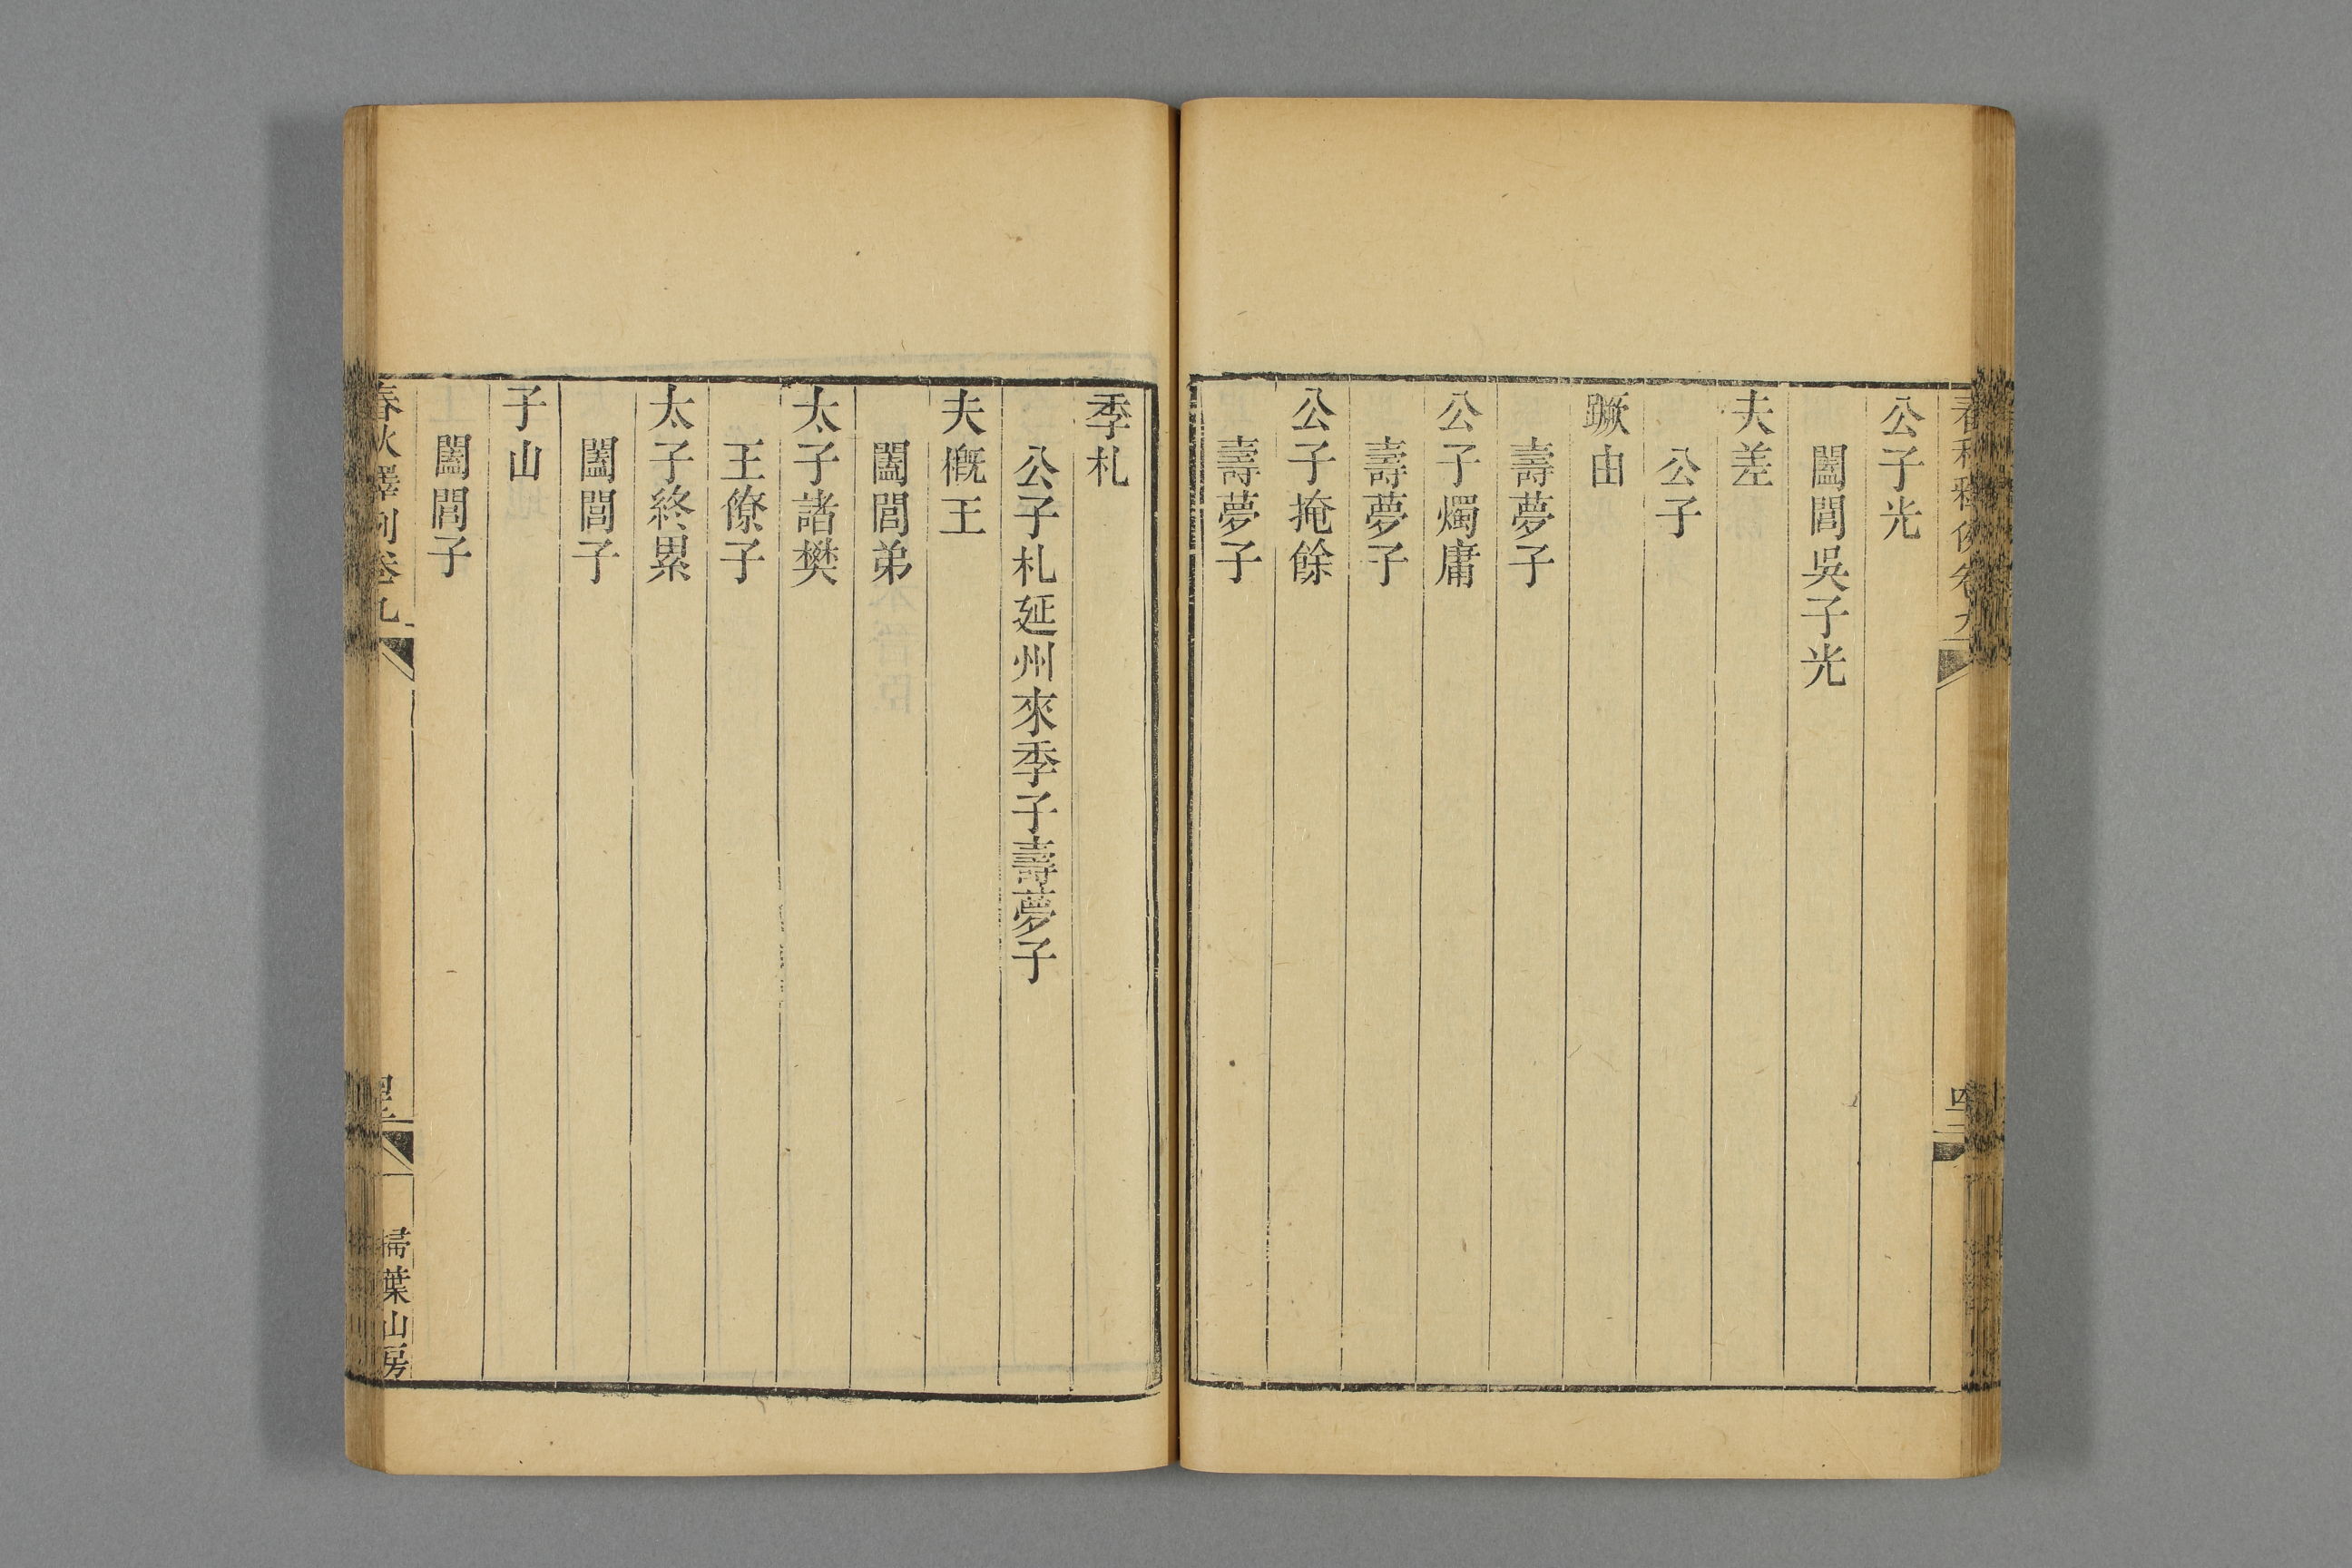 公子光
闔閭吳子光
夫差
公子
蹶由
壽夢子
公子燭庸
壽夢子
公子掩餘
壽夢子
季札
公子札延州來季子壽夢子
夫槪王
闔閭弟
太子諸樊
王僚子
太子終累
闔閭子
子山
闔閭子
春秋釋例卷九
掃葉山房